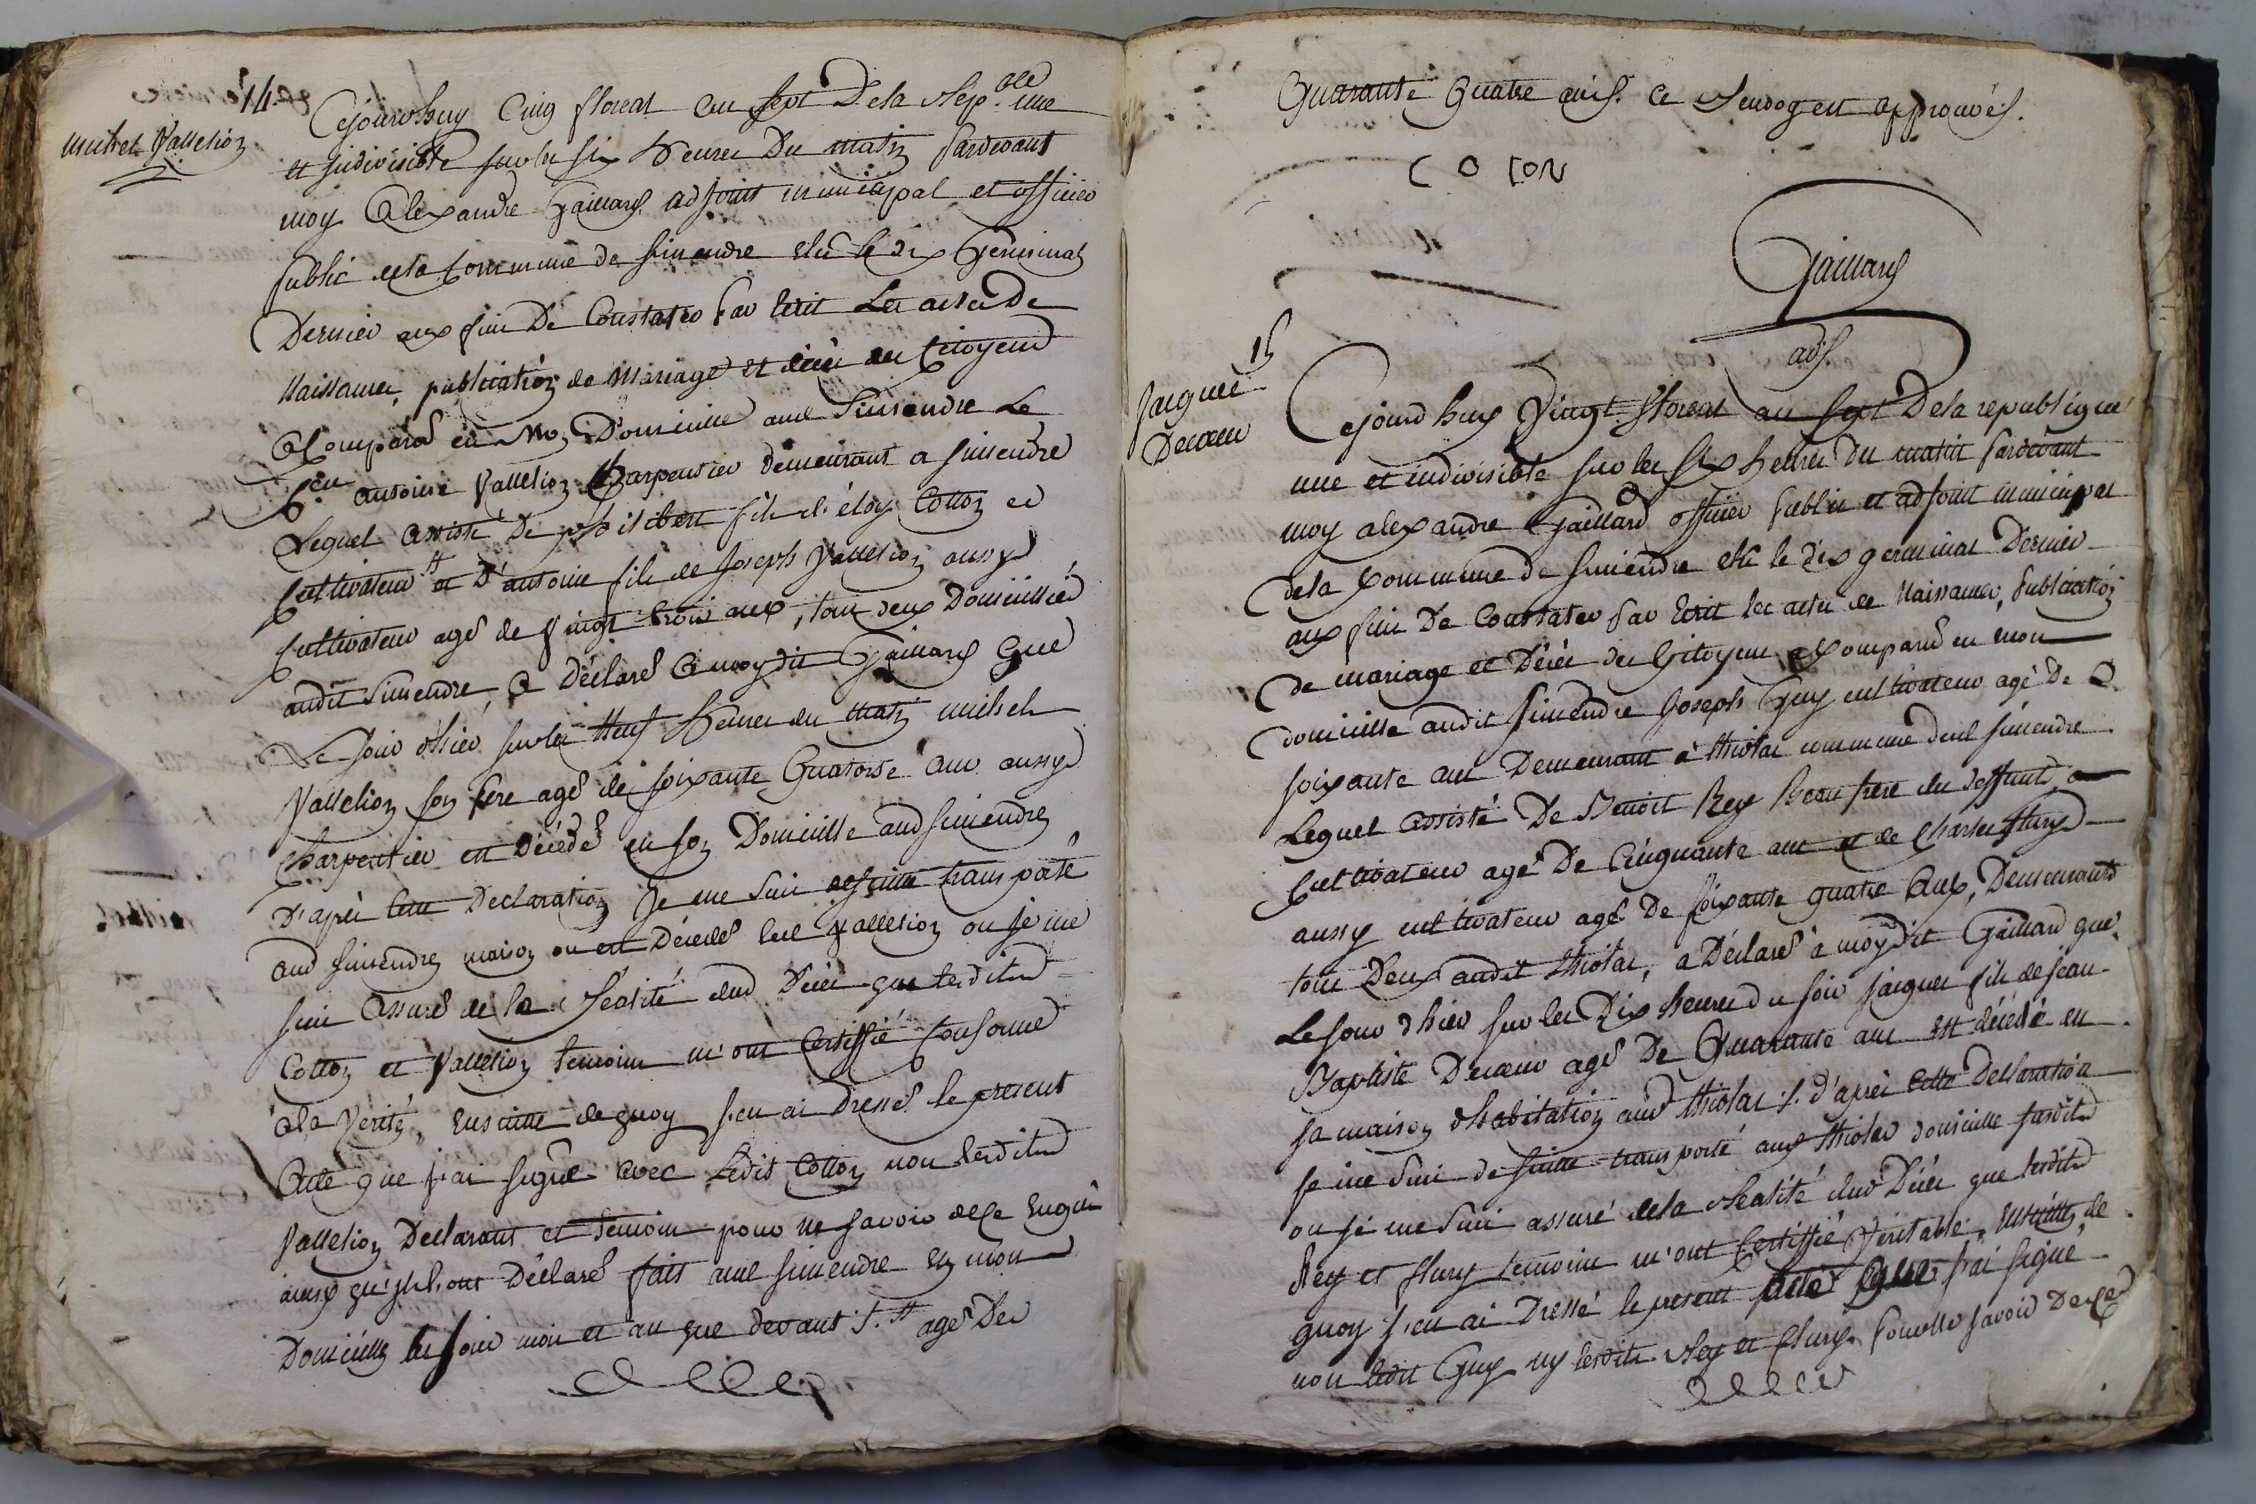 14
michel Vallelion
Cejourdhuy Cinq floreal an Sept De la Rep.que une
et Indivisible sur les six heures Du matin Pardevant
moy Alexandre Gaillard adjoint municipal et officier
public de la Commune de Simandre élu le dix Germinal
Dernier aux fins De Constater Par Ecrit Les actes De
Naissances, publication de Mariage et décès des Citoyens
a Comparu en Mon Domicille aud Simandre Le
C.en antoine Vallelion Charpentier demeurant a Simandre
Lequel assisté De philibert fils d'éloy Cotton
Cultivateur # et D'antoine fils de Joseph Vallelion aussy
Cultivateur agé de Vingt trois ans, tous deux Domicilliés
audit Simandre, a Déclaré a moydit Gaillard que
Le jour d'hier sur les Neuf heures du Matin michel
Vallelion son Pere agé de soixante Quatorse ans aussy
Charpentier est Décédé en son Domicille aud Simandre
D'après Cette Declaration Je me suis de suitte transporté
aud Simandre maison ou est Décédé led Vallelion ou je me
suis assuré de la Réalité dud Décès que lesdits
Cotton et Vallelion temoins m'ont Certiffié Conforme
à la Verité, Ensuitte de quoy j'en ai Dressé le present
Acte que j'ai signé avec Ledit Cotton non lesdits
Vallelion Declarant et temoin pour ne savoir de ce Enquis
ainsy qu'ils ont Déclaré fait aud Simandre En mon
Domicille les jour mois et an que devant ./. # agé De
Quarante Quatre ans. ce Renvoy est approuvés.
COTON
Gaillard
adj.
15
Jacques
Decoeur
Cejourd huy Vingt floreal an Sept De la republique
une et indivisible sur les six heures du matin Pardevant
moy alexandre Gaillard officier Public et adjoint municipal
de la Commune de Simandre élu le dix germinal Dernier
aux fins De Constater Par Ecrit les actes de Naissances, Publication
De mariage et Décès des Citoyens a Comparu en mon
domicille audit Simandre Joseph Guy cultivateur agé De
soixante ans Demeurant à Thiolas commune dud Simandre
Lequel assisté De Benoit Rey Beau frere du deffunt
Cultivateur agé De Cinquante ans et de Charles flury
aussy cultivateur agé De soixante quatre ans, Demeurants
tous Deux audit Thiolas, a Déclaré à moydit Gaillard que
Le jour d'hier sur les Dix heures du soir Jacques fils de Jean
Baptiste Decoeur agé De Quarante ans Est décédé en
sa maison d'habitation aud Thiolas ./. d'après Cette Declaration
je me suis de suitte transporté aud Thiolas domicille susdit
ou je me suis assuré de la Réalité dud Décès que lesdits
Rey et flury temoins m'ont Certiffié Véritable, Ensuitte de
quoy j'en ai Dressé le present Acte que j'ai signé
non ledit Guy ny lesdits Rey et flury. Pour ne savoir De ce